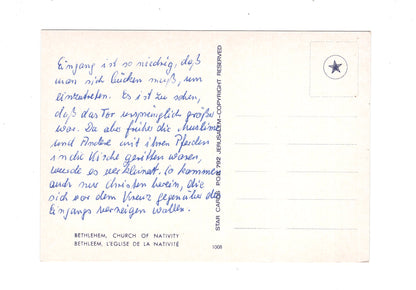 Eingang ist so niedrig, daß
man sich bücken muß, um
einzutreten. Es ist zu sehen,
daß das Tor ursprünglich größer
war. Da aber früher die Muslime
und Andere mit ihren Pferden
in die Kirche geritten waren,
wurde es verkleinert. So kommen
auch nur Christen herein, die
sich vor dem Kreuz gegenüber des
Eingangs verneigen wollen.
BETHLEHEM, CHURCH OF NATIVITY
BETHLEEM, L'EGLISE DE LA NATIVITÉ
1008
STAR CARDS POB 792 JERUSALEM-COPYRIGHT RESERVED